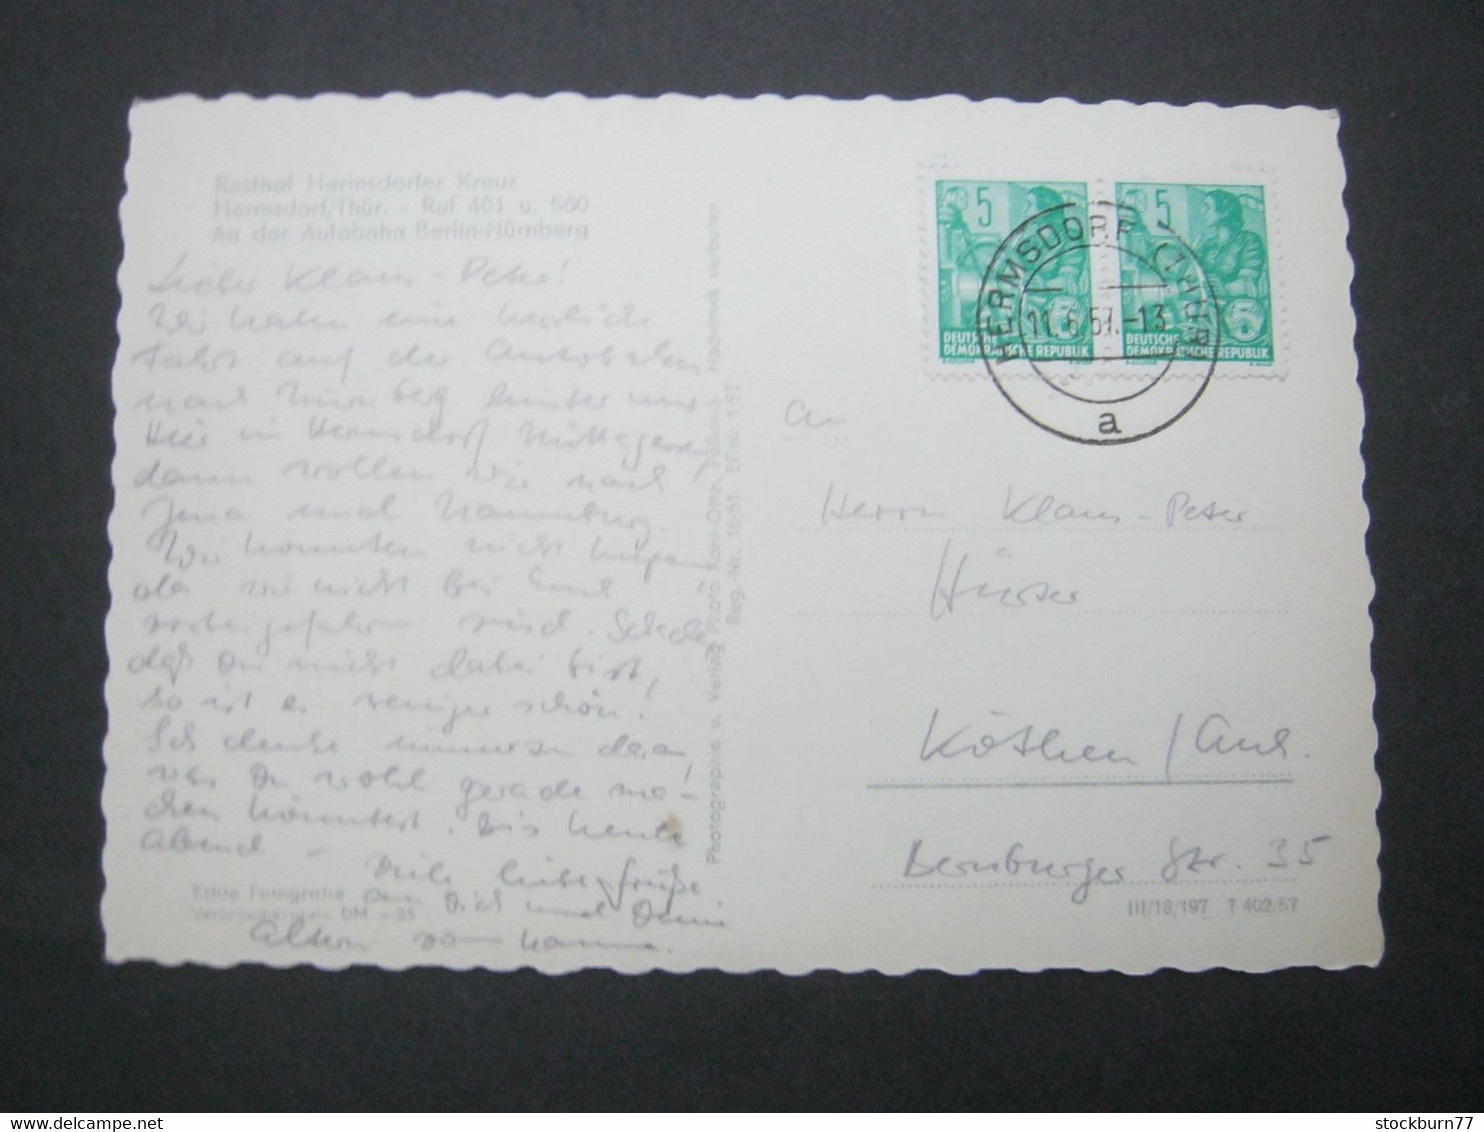 Rasthof Hermsdorfer Kreuz
Hermsdorf/Thür. - Ruf 461 u. 560
An der Autobahn Berlin-Nürnberg
Lieber Klaus-Peter!
Wir haben eine herrliche
Fahrt auf der Autobahn
nach Nürnberg hinter uns.
Hier in Hermsdorf
dann wollen wir nach
Jena und Naumburg.
Wir konnten nicht
da wir nicht bei
vorbeigefahren sind. Schade,
daß Du nicht dabei bist,
so ist es weniger schön!
Ich denke immerzu daran,
was Du wohl gerade ma-
chen könntest. Bis heute
Abend -
Viele liebe Grüße
an Dich und Deine
Eltern von
Echte Fotografie
Verbraucherpreis DM -,25
Photographie u. Verlag Photo Nachdruck verboten.
Reg.-Nr. 16/51
5
DEUTSCHE
DEMOKRATISCHE REPUBLIK
5
5
DEUTSCHE
DEMOKRATISCHE REPUBLIK
HERMSDORF (THÜR)
11.6.57.-13
a
An
Herrn Klaus-Peter
Köthen / Anh.
Bernburger Str. 35
III/18/197 T 402/57
stockburn77